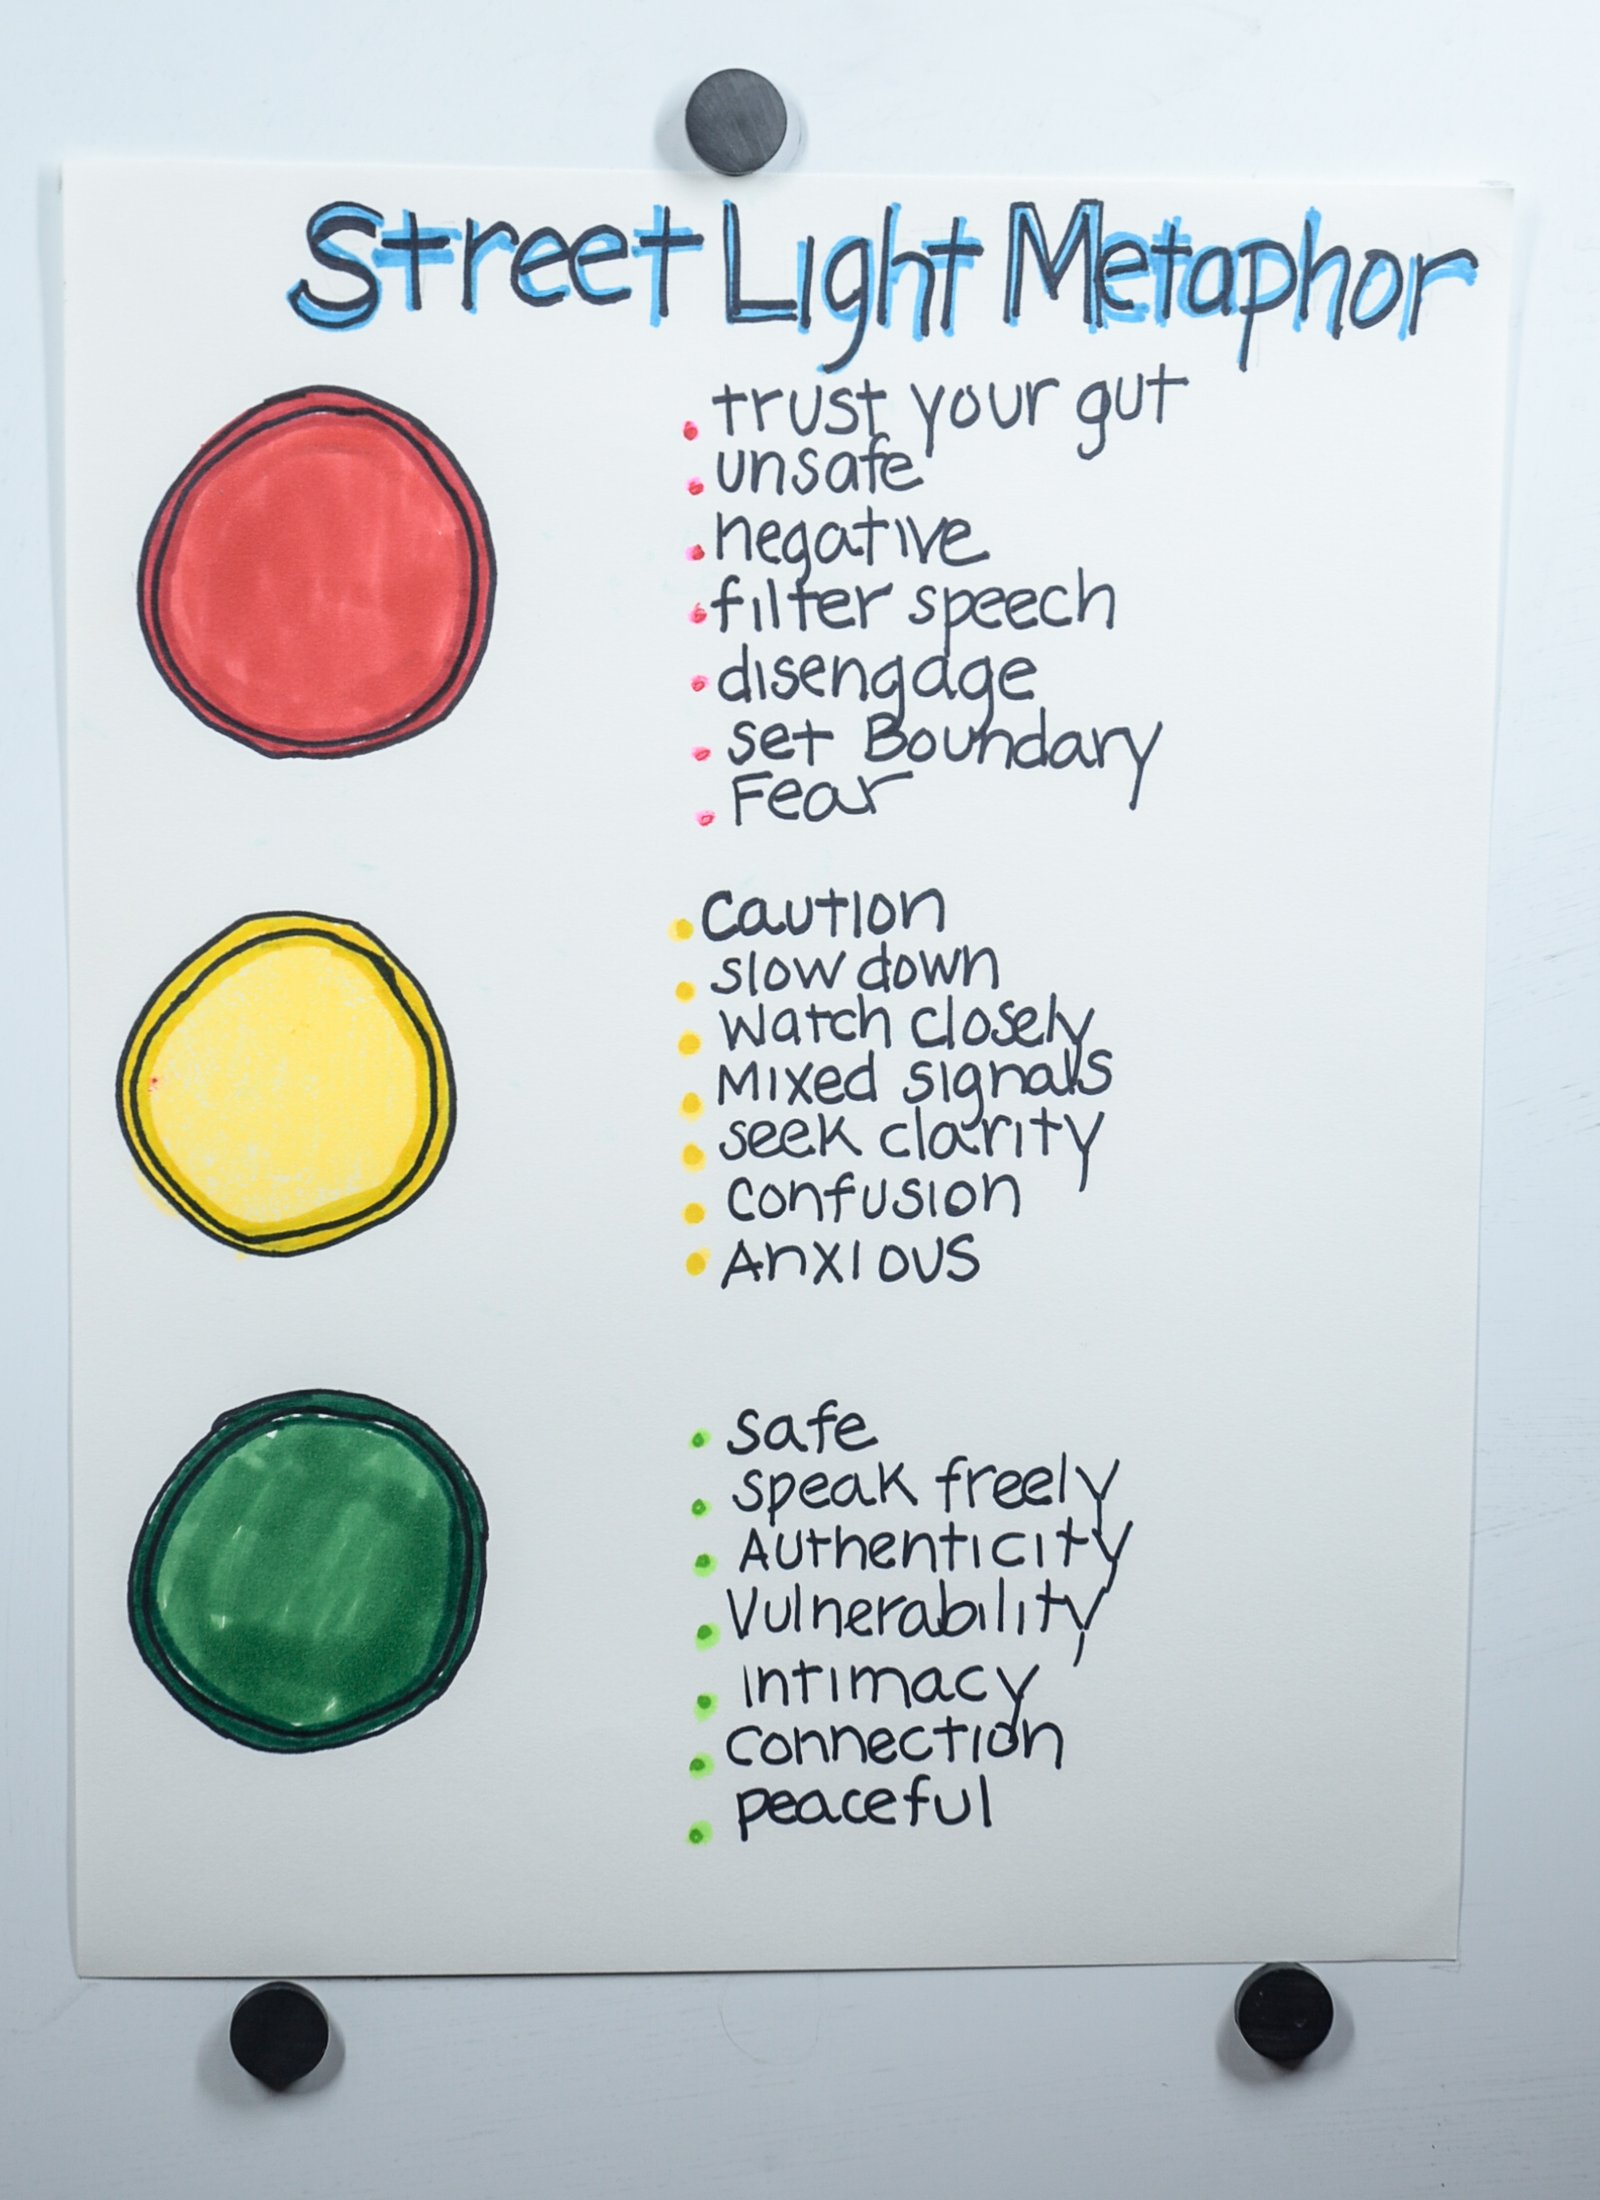 Street Light Metaphor
trust your gut
unsafe
negative
filter speech
disengage
set Boundary
Fear
Caution
slow down
Watch closely
Mixed signals
seek clarity
confusion
Anxious
safe
speak freely
Authenticity
Vulnerability
intimacy
connection
peaceful